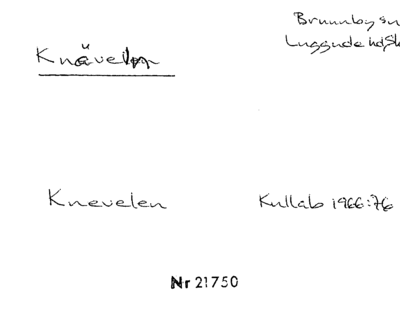 Knäveln
Brunnby sn
Luggude hd, Sk
Knevelen
Kullab 1966:76
Nr 21750